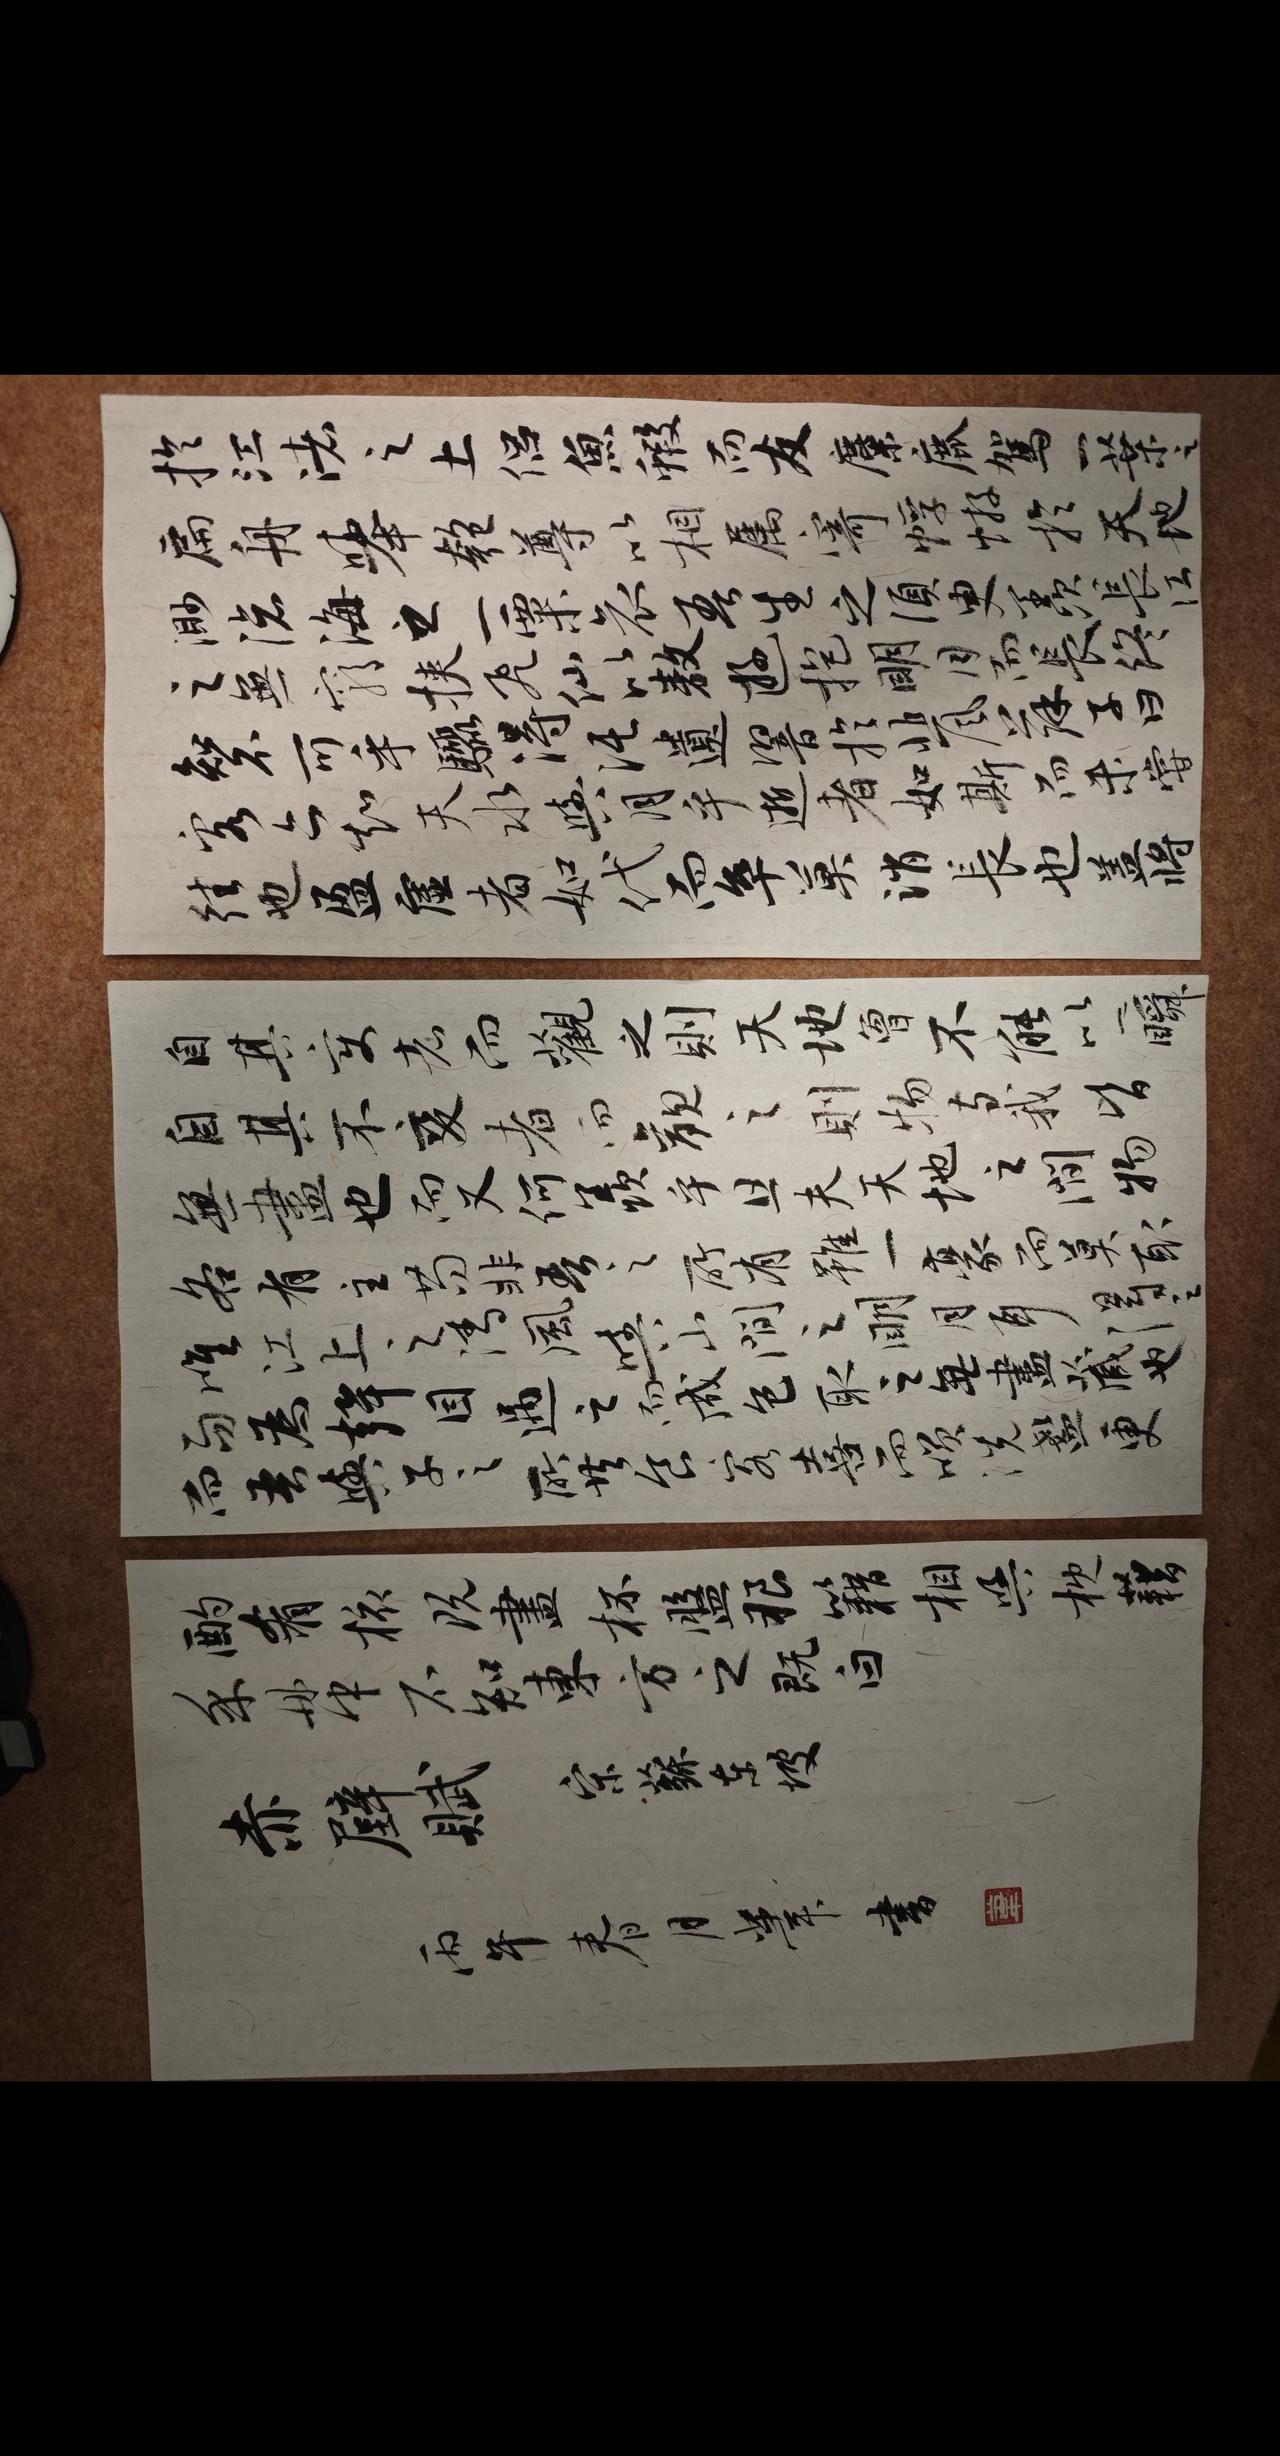 於江渚之上侶魚蝦而友麋鹿駕一葉之
扁舟舉匏尊以相屬寄蜉蝣於天地
渺滄海之一粟哀吾生之須臾羨長江
之無窮挾飛仙以遨遊抱明月而長終
知不可乎驟得託遺響於悲風蘇子曰
客亦知夫水與月乎逝者如斯而未嘗
往也盈虛者如代而卒莫消長也蓋將
自其變者而觀之則天地曾不能以一瞬
自其不變者而觀之則物與我皆
無盡也而又何羨乎且夫天地之間物
各有主苟非吾之所有雖一毫而莫取
唯江上之清風與山間之明月耳得之
而為聲目遇之而成色取之無盡藏也
而吾與子之所共食客喜而笑洗盞更
酌肴核既盡杯盤狼籍相與枕藉
乎舟中不知東方之既白
赤壁賦 宋蘇東坡
丙午春月業書